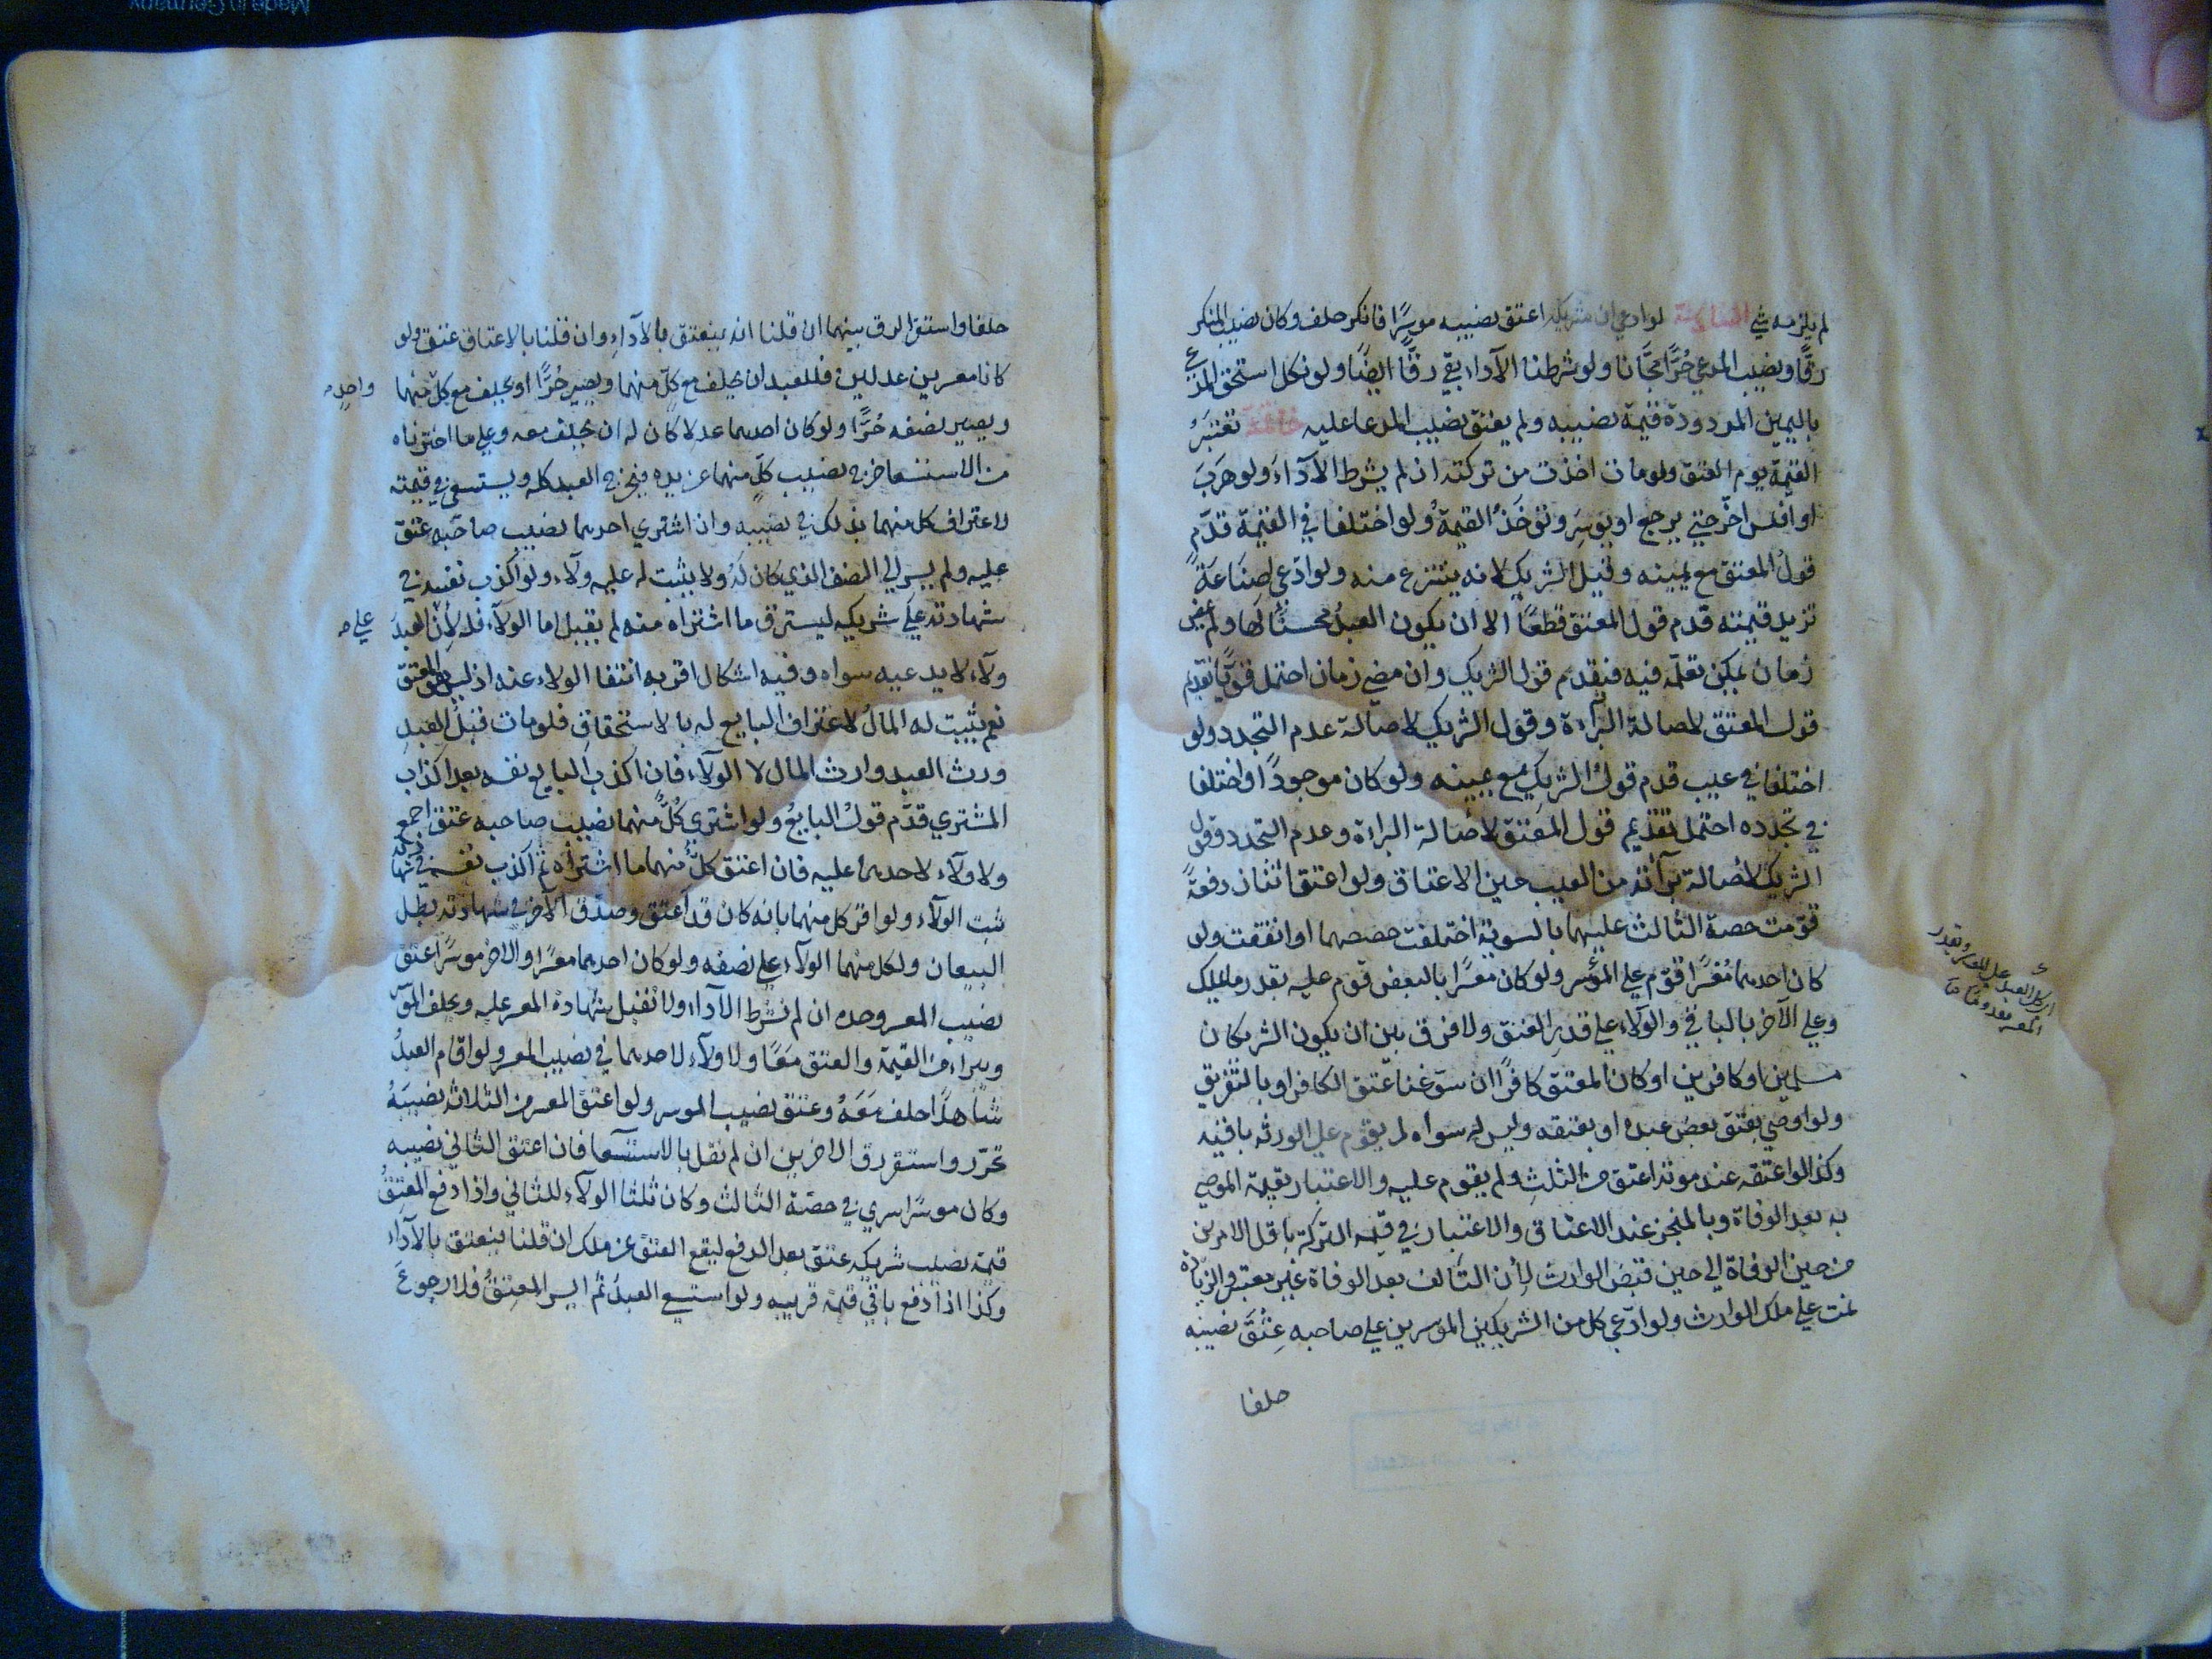 لم يلزمه شي الثامنة لو ادعي ان شريكه اعتق نصيبه موسرًا فانكر حلف وكان نصيب المنكر
رقًّا ونصيب المدعي حُرًّا مجَّانا ولو شرطنا الآداء بقي رقًّا ايضًا ولو نكل استحق المدعي
باليمين المردودة قيمة نصيبه ولم يعتق نصيب المدعا عليه خاتمة تعتبَرُ
القيمة يوم العتق ولو مات اخذت من تركته ان لم يشرط الآداءَ ولو هربَ
او افلس اخّر حتي يرجع او يوسِرَ وتؤخذُ القيمةُ ولو اختلفا في القيمة قدّم
قولُ المعتق مع يمينه وقيل الشريك لانه ينتزع منه ولو ادّعي صِنَاعَةً
تزيد قيمته قدّم قول المعتق قطعًا الا ان يكون العبدُ محسنًا لها ولم يمض
زمان يمكن تعلّمه فيه فيقدم قول الشريك وان مضي زمان احتمل قويًّا تقديم
قول المعتق لاصالة البرآءة وقول الشريك لاصالة عدم التجدد ولو
اختلفا في عيب قدم قولُ الشريك مع يمينه ولو كان موجودًا واختلفا
في تجدده احتمل تقديم قول المعتق لاصالة البراءة وعدم التجدد وقول
الشريك لاصالة برآءته من العيب حين الاعتاق ولو اعتق اثنان دفعةً
قوّمت حصة الثالث عليهما بالسوية اختلفت حصصهما او اتفقت ولو
كان احدهما مُعسرًا قوّم علي الموسر ولو كان معسرًا بالبعض قوّم عليه بقدر ما يملك
وعلي الآخر بالباقي والولآء علي قدرِ العتق ولا فرق بين ان يكون الشريكان
مسلمين او كافرين او كان المعتق كافرًا ان سوّغنا عتق الكافر او بالتفريق
ولو اوصي بعتق بعض عبده او بعتقه وليس له سواه لم يقوّم علي الورثه باقيه
وكذا لو اعتقه عند موته اعتق من الثلثِ ولم يقوم عليه والاعتبار بقيمة الموصي
به بعد الوفاة وبالمنجز عند الاعتاق والاعتبار في قيمة التركة باقل الامرين
من حين الوفاة الي حين قبض الوارث لأن التالف بعد الوفاة غير معتبر والزيادة
نمت علي ملك الوارث ولو ادّعي كل من الشريكين الموسرين علي صاحبه عِتْقَ نصيبه
حلفا
حلفا واستقرّ الرق بينهما ان قلنا انه ينعتق بالآداءِ وان قلنا بالاعتاق عتق ولو
كانا معسرين عدلين فللعبد ان يحلف مع كلّ منهما ويصير حُرًّا او يحلف مع كل منهما
واحد
ويصير نصفه حُرًّا ولو كان احدهما عدلا كان له ان يحلف معه وعلي ما اخترناه
من الاستسعا خرج نصيب كلٍّ منهما عن يده فيخرج العبد كله ويستسعي في قيمته
لاعتراف كل منهما بذلك في نصيبه وان اشتري احدهما نصيب صاحبه عتق
عليه ولم يسر الي النصف الذي كان لَهُ ولا يثبت له عليه ولآء ولو اكذب نفسه في
شهادته علي شريكه ليسترق ما اشتراه منه لم يقبل اما الولآء فله لأن العبدَ
علي
ولآء لا يدعيه سواه وفيه اشكال اقربه انتفا الولاء عنه اذ ليس هو المعتق
نعم يثبت له المالُ لاعتراف البايع له بالاستحقاق فلو مات قبل العبدِ
ورث العبد وارث المال لا الولآء فان اكذب البايع نفسه بعد اكذاب
المشتري قدّم قولُ البايع ولو اشترى كُلٌّ منهما نصيب صاحبه عتق اجمع
ولا ولآء لاحدهما عليه فان اعتق كلٌّ منهما ما اشتراه ثم اكذب نفسه في شهادته
ثبت الولآء ولو اقرّ كل منهما بانه كان قد اعتق وصدّق الآخر في شهادته بطل
البيعان ولكل منهما الولآء علي نصفه ولو كان احدهما معسرًا والآخر موسرًا عتق
نصيب المعسر وحده ان لم نشرط الآداء ولا تقبل شهادة المعسر عليه ويحلف الموسر
ويبراء من القيمة والعتق معًا ولا ولآء لاحدهما في نصيب المعسر ولو اقام العبدُ
شاهدًا حلف مَعَهُ وعتق نصيب الموسر ولو اعتق المعسر من الثلاثة نصيبَهُ
تحرّر واستقر رق الاخرين ان لم نقل بالاستسعا فان اعتق الثاني نصيبه
وكان موسرًا سري في حصّة الثالث وكان ثلثا الولآء للثاني واذا دفع المعتِقُ
قيمة نصيب شريكه عتق بعد الدفع ليقع العتق عن ملك ان قلنا ينعتق بالآداء
وكذا اذا دفع باقي قيمة قريبه ولو استسعي العبدُ ثم ايسر المعتِقُ فلا رجوعَ